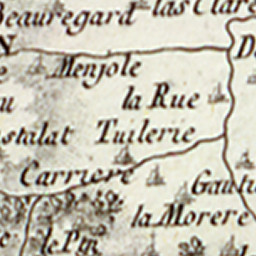 Beauregard
las Clare
N
Menjole
la Rue
stalat Tuilerie
Carriere
Gauti
la Morere
le Pin